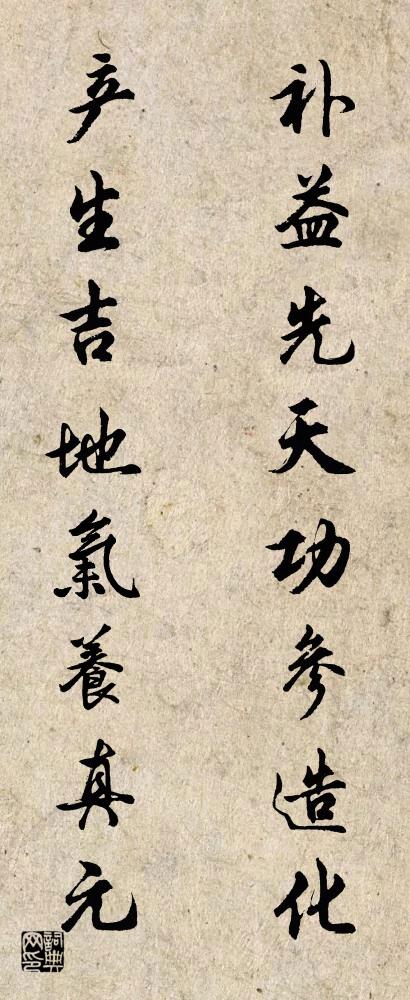 补益先天功参造化
产生吉地氣養真元
詞典网印